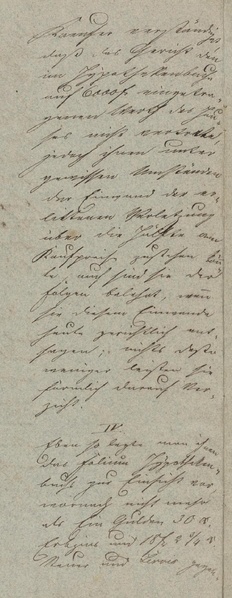 Kaufer verständigt,
daß das Gericht den
im Hypothekenbuche
auf 6000 f eingetra-
genen Werth des Hau-
ses nicht vertrete,
jedoch ihnen unter
gewissen Umständen
der Einwand der er-
littenen Verletzung
über die Hälfte am
Kaufpreis zustehen kön-
te, auch sind sie der
Folgen belehrt, wenn
sie diesem Einwande
heute gerichtlich ent-
sagen; nichts desto
weniger leisten sie
förmlich darauf Ver-
zicht.
IV.
Eben so legte man ihnen
das Folium Hypotheken-
buch zur Einsicht vor
wornach nicht mehr
als Ein Gulden 30 x
und 18
und